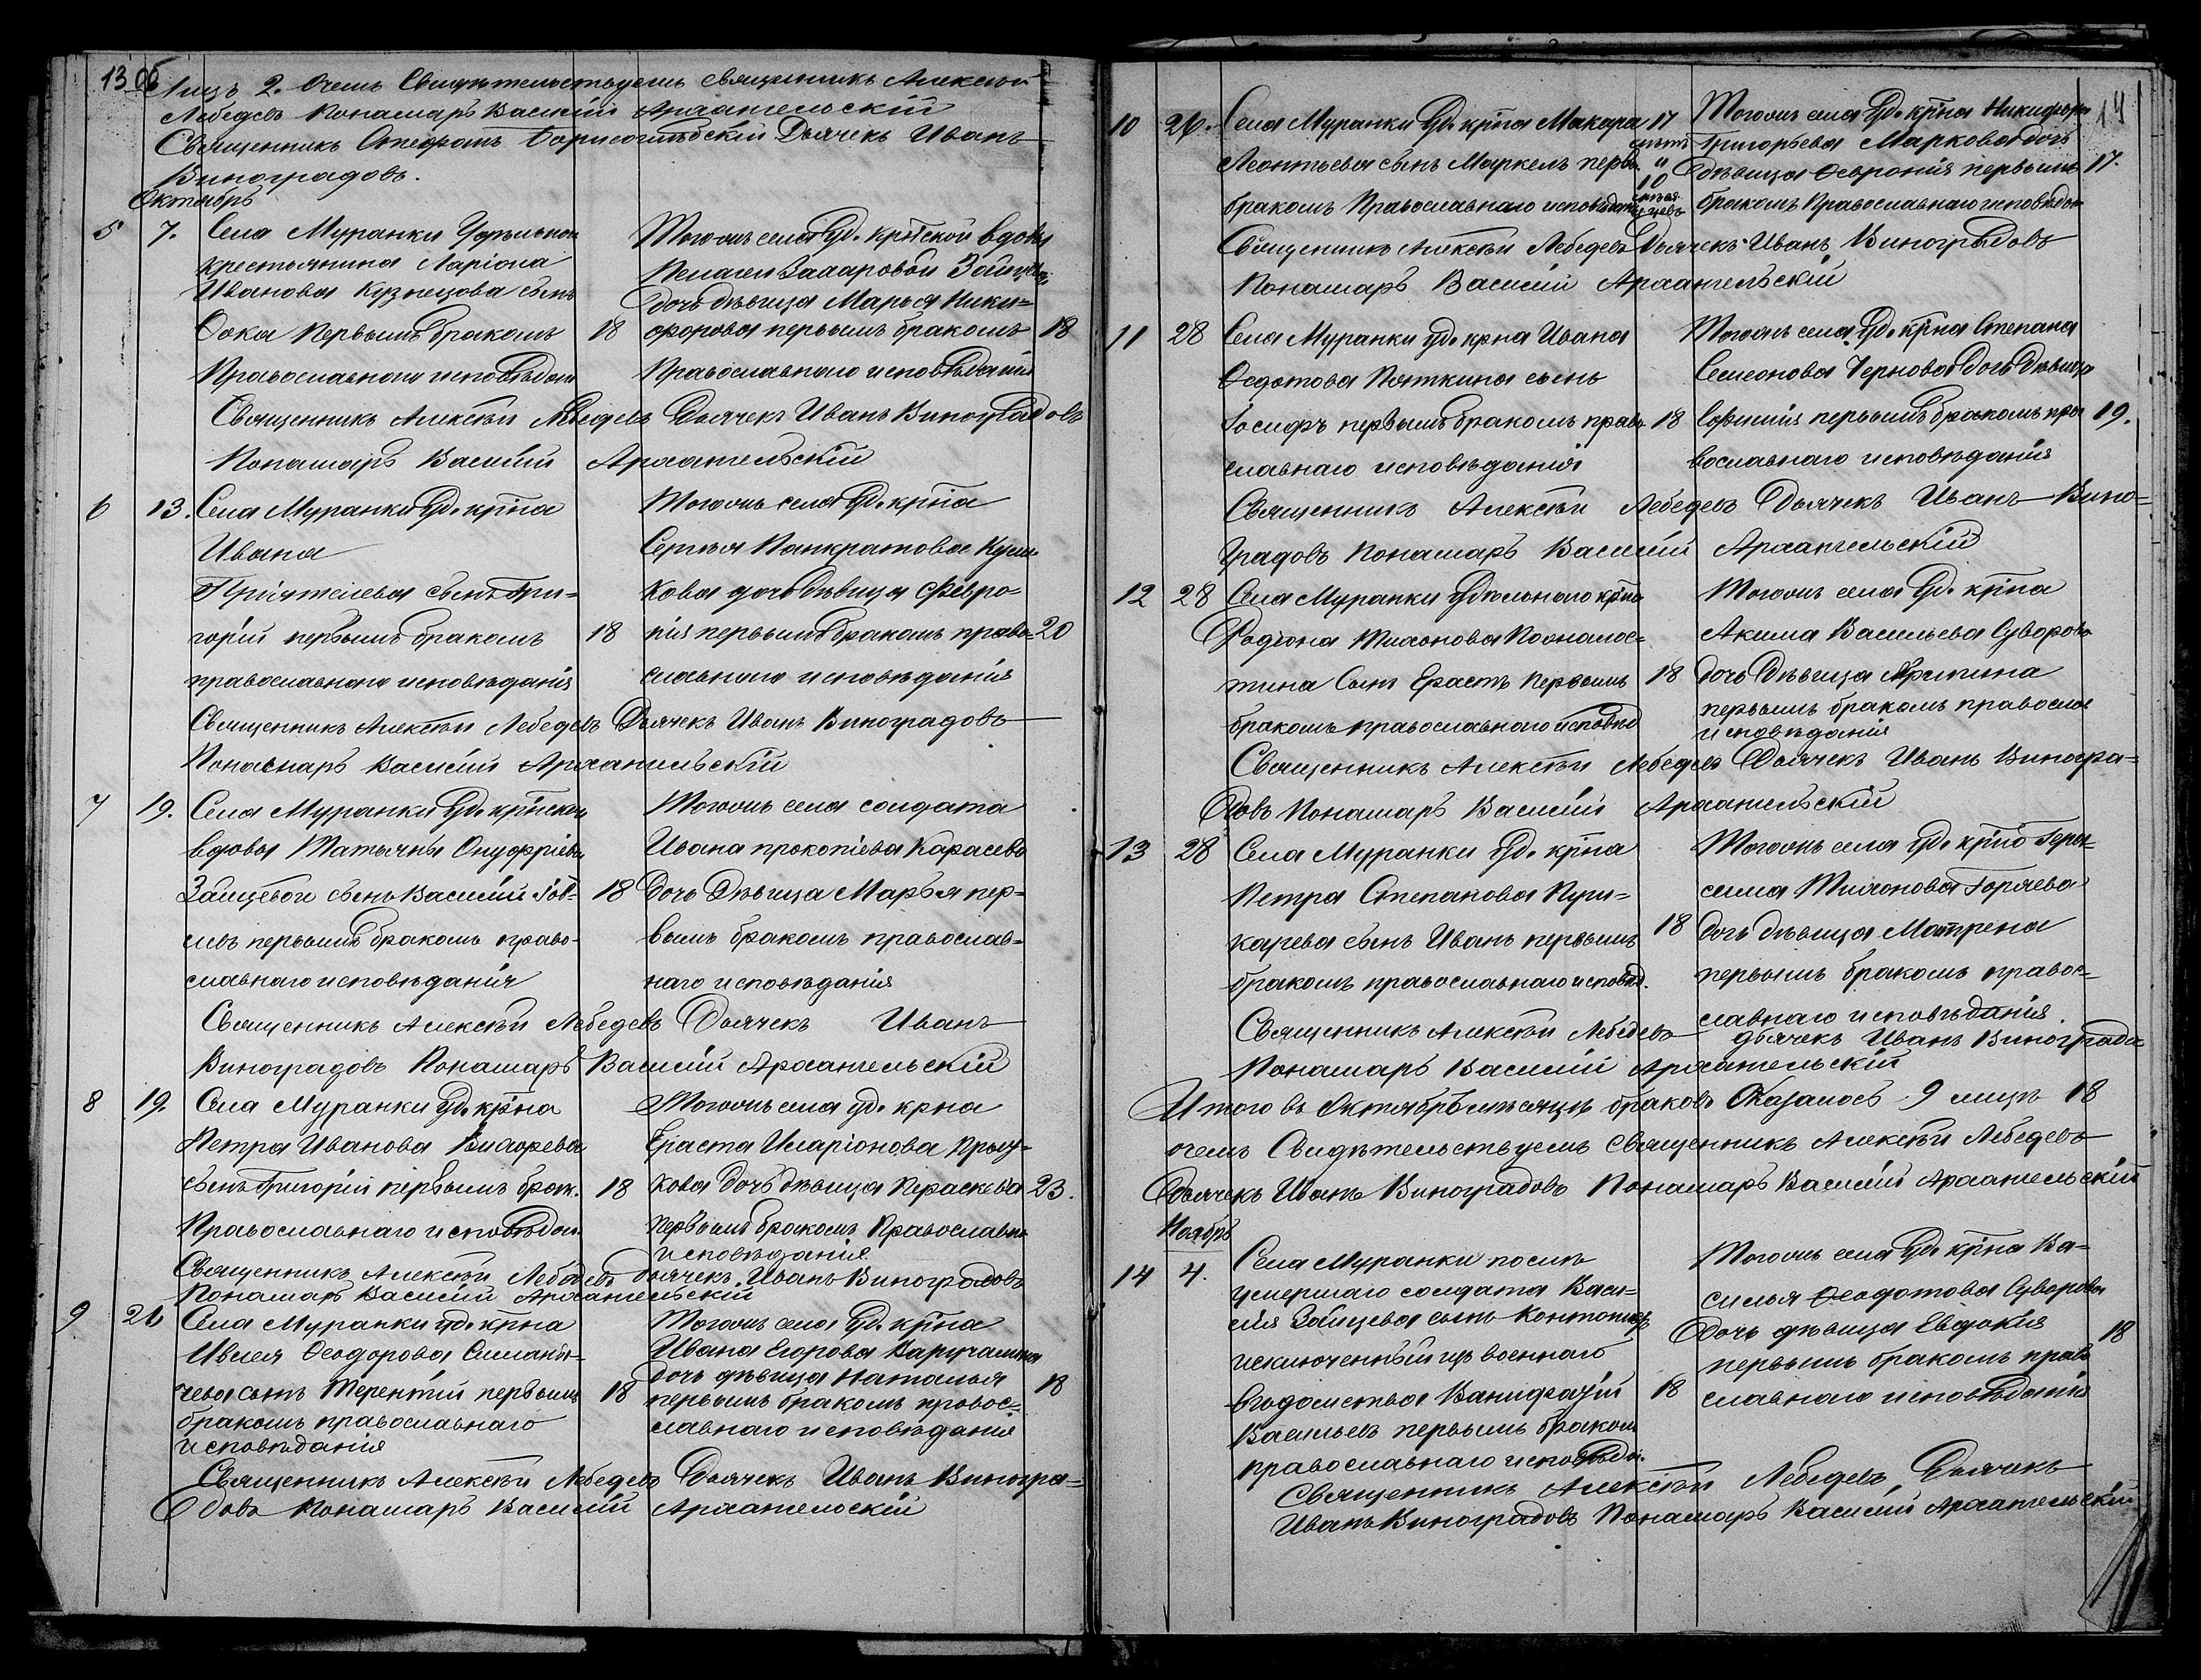 13 об
Лицъ 2. Очемъ Свидѣтельствуемъ священникъ Алексѣй
Лебедевъ Понамарь Василій Архангельскій
Священникъ Стефанъ Борисоглѣбскій Дьячекъ Иванъ
Виноградовъ.
Октябрь
5 7. Села Муранки Удѣльнаго
крестьянина Ларіона
Иванова Кузнецова сынъ
Фока первымъ бракомъ 18
Православнаго исповѣдан
Тогожъ села Уд. кртской вдовы
Пелагеи Захаровой Зайцевой
дочь дѣвица Марья Ники=
форова первымъ бракомъ 18
Православнаго исповѣданія
Священникъ Алексѣй Лебедевъ Дьячекъ Иванъ Виноградовъ
Понамарь Василій Архангельскій
6 13. Села Муранки Уд. крна
Ивана
Пріятелева сынъ Гри=
горій первымъ бракомъ 18
православнаго исповѣданія
Тогожъ села Уд. крна
Сергѣя Панкратова
кова дочь дѣвица Февро=
нія первымъ бракомъ право= 20
славнаго исповѣданія
Священникъ Алексѣй Лебедевъ Дьячекъ Иванъ Виноградовъ
Понамарь Василій Архангельскій
7 19. Села Муранки Уд. кртской
вдовы Татьяны Онуфріевой
Зайцевой сынъ Василій 18
левъ первымъ бракомъ право-
славнаго исповѣданія
Тогожъ села солдата
Ивана Прокопіева Карасева
дочь дѣвица Марья пер=
вымъ бракомъ православ=
наго исповѣданія
Священникъ Алексѣй Лебедевъ Дьячекъ Иванъ
Виноградовъ Понамарь Василій Архангельскій
8 19. Села Муранки Уд. крна
Петра Иванова
сынъ Григорій первымъ брак. 18
Православнаго исповѣдан.
Тогожъ села уд. крна
Ераста Иларіонова
кова дочь дѣвица Праскева 23.
первымъ бракомъ Православн
исповѣданія
Священникъ Алексѣй Лебедевъ дьячекъ Иванъ Виноградовъ
Понамарь Василій Архангельскій
9 21 Села Муранки уд. крна
Ивлея Ѳеодорова Симань=
чева сынъ Терентій первымъ 18
бракомъ православнаго
исповѣданія
Тогожъ села Уд. крна
Ивана Егорова
дочь дѣвица Наталья 18
первымъ бракомъ правос=
славнаго исповѣданія
Священникъ Алексѣй Лебедевъ Дьячекъ Иванъ Виногра=
довъ Понамарь Василій Архангельскій
14
10 26. Села Муранки Уд. крна Макара 17
Леонтьева сынъ Маркелъ перв.
лѣтъ и 10 мѣсяцевъ
бракомъ Православнаго исповѣдан
Тогожъ села Уд. крна Никифора
Григорьева Маркова дочь
дѣвица Ѳеvронія первымъ 17.
бракомъ Православнаго исповѣдан
Священникъ Алексѣй Лебедевъ Дьячекъ Иванъ Виноградовъ
Понамарь Василій Архангельскій
11 28 Села Муранки уд. крна Ивана
Ѳедотова Пяткина сынъ
Іосифъ первымъ бракомъ право 18
славнаго исповѣданія
Тогожъ села Уд. крна Степана
Семенова Чернова дочь дѣвица
Евфимія первымъ бракомъ пра 19.
вославнаго исповѣданія
Священникъ Алексѣй Лебедевъ Дьячекъ Иванъ Вино=
градовъ Понамарь Василій Архангельскій
12 28 Села Муранки Удѣльнаго крна
Родіона Тихонова
тина сынъ Ерастъ первымъ 18
бракомъ православнаго исповѣд
Тогожъ села Уд. крна
Акима Васильева Суворова
дочь дѣвица
первымъ бракомъ православ
исповѣданія
Священникъ Алексѣй Лебедевъ Дьячекъ Иванъ Виногра=
довъ Понамарь Василій Архангельскій
13 28 Села Муранки Уд. крна
Петра Степанова Пуш=
карева сынъ Иванъ первымъ 18
бракомъ православнаго исповѣд.
Тогожъ села Уд. крна Гера=
сима Тихонова Горяева
дочь дѣвица Матрена
первымъ бракомъ правос=
славнаго исповѣданія.
Священникъ Алексѣй Лебедевъ дьячекъ Иванъ Виноградо
Понамарь Василій Архангельскій
Итого въ Октябрѣ мѣсяцѣ браковъ Оказалось 9 лицъ 18
очемъ Свидѣтельствуемъ священникъ Алексѣй Лебедевъ
Дьячекъ Иванъ Виноградовъ Понамарь Василій Архангельскій
Ноябрь
14 4. Села Муранки послѣ
умершаго солдата Васи=
лія Зайцева сынъ Контонистъ
исключенный изъ военнаго
вѣдомства Ванифатій 18
Васильевъ первымъ бракомъ
православнаго исповѣдн.
Тогожъ села Уд. крна Ва=
силья Ѳеодотова Суворова
Дочь дѣвица Евдокія 18
первымъ бракомъ право
славнаго исповѣданія
Священникъ Алексѣй Лебедевъ, Дьячекъ
Иванъ Виноградовъ Понамарь Василій Архангельскій